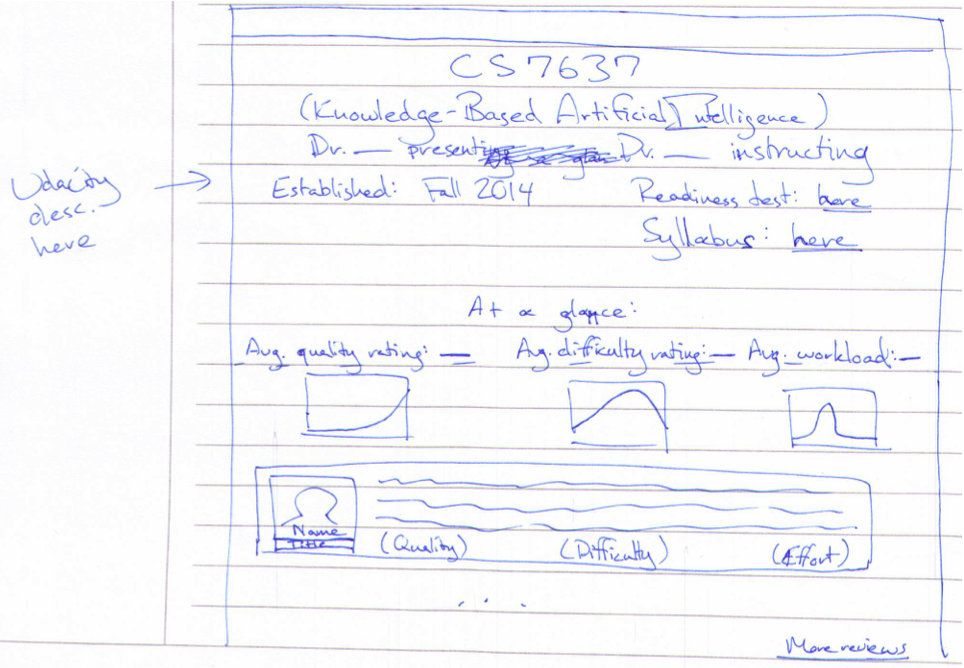 CS7637
(Knowledge-Based Artificial Intelligence)
Dr. — presenting Dr. — instructing
Udacity
desc.
here
Established: Fall 2014 Readiness test: here
Syllabus: here
At a glance:
Avg. quality rating: — Avg. difficulty rating: — Avg. workload: —
Name
Title
(Quality) (Difficulty) (Effort)
...
More reviews